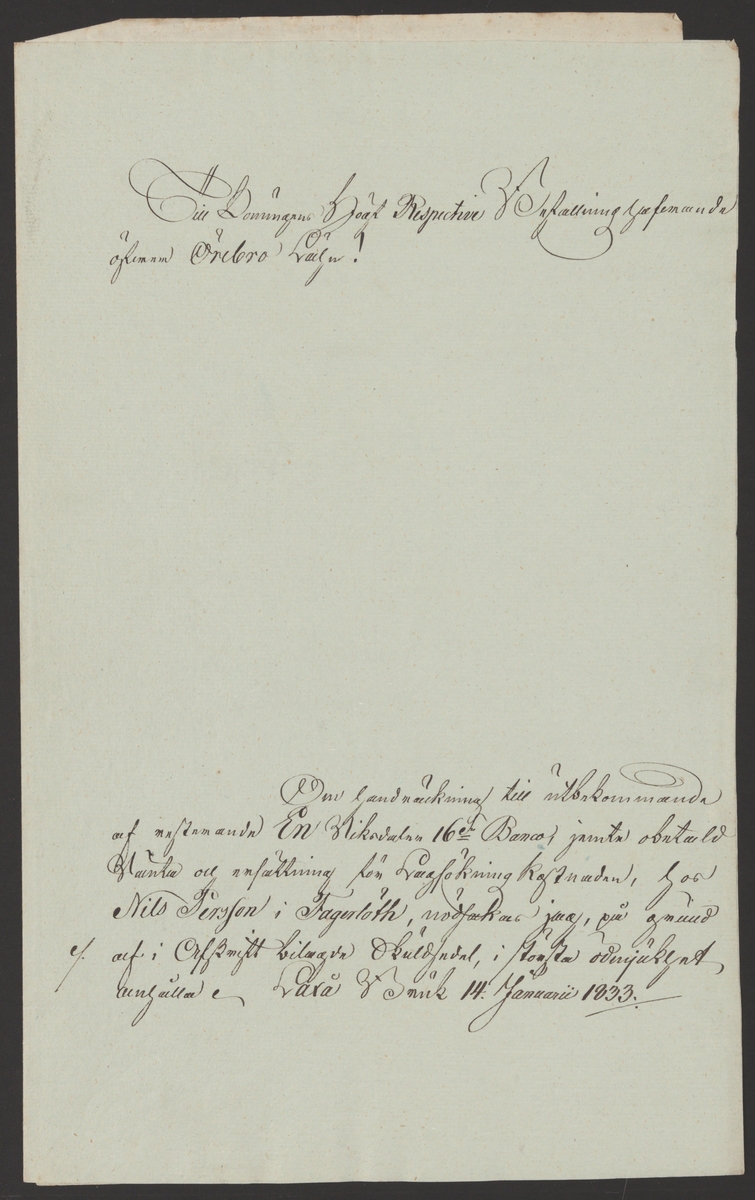 Till Konungens Högt Respective Befallningshafwande
öfwer Örebro Lähn!
Om handräckning till utbekommande
af resterande En Riksdaler 16 sk Banco, jemte obetald
Ränta och ersättning för Lagsökning Kostnaden, hos
Nils Persson i Fagerlöth, nödsakas jag, på grund
af i Afskrift bilagde Skuldsedel, i största ödmjukhet
anhålla Laxå Bruk 14. Januarii 1833.